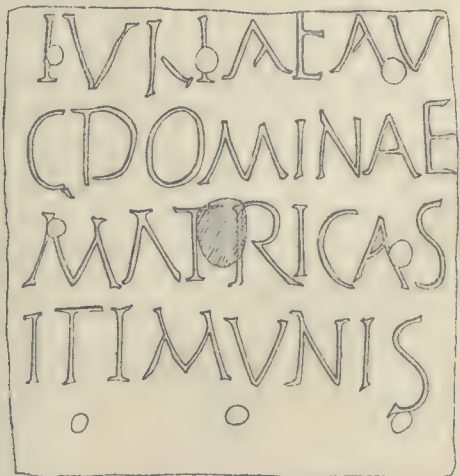 IVLIAEAV
GDOMINAE
MATRICAS
ITIMVNIS